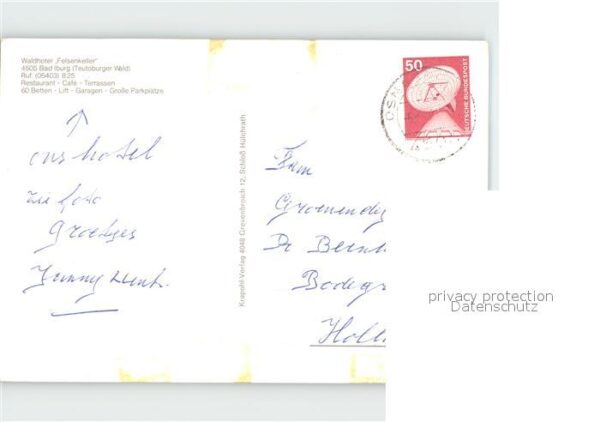 Waldhotel „Felsenkeller"
4505 Bad Iburg (Teutoburger Wald)
Ruf: (05403) 825
Restaurant - Café - Terrassen
60 Betten - Lift - Garagen - Große Parkplätze
ons hotel
zie foto
Groetjes
Jenny
Krapohl-Verlag 4048 Grevenbroich 12, Schloß Hülchrath
50
DEUTSCHE BUNDESPOST
Fam
Groenendij
Dr Beern
Bodegr
Holl
privacy protection
Datenschutz